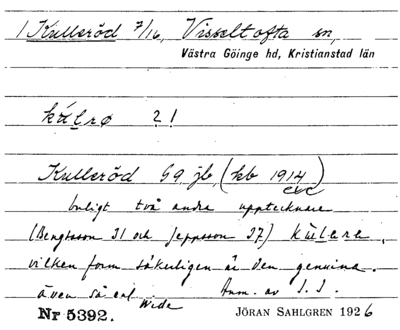 1 Kulleröd 7/16, Visseltofta sn,
Västra Göinge hd, Kristianstad län
kúlrø 2!
Kulleröd Gg jb, (kb 1914) etc
Enligt två andra upptecknare
(Bengtsson 31 och Jeppsson 27) kúlara,
vilken form säkerligen är den genuina.
även så enl Wide Anm. av I. I.
Nr 5392. JÖRAN SAHLGREN 1926